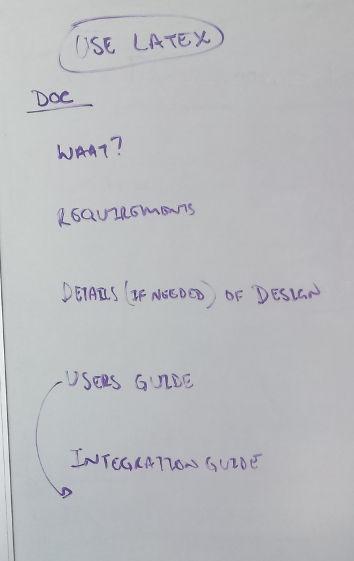 USE LATEX
DOC
WHAT?
REQUIREMENTS
DETAILS (IF NEEDED) OF DESIGN
USERS GUIDE
INTEGRATION GUIDE